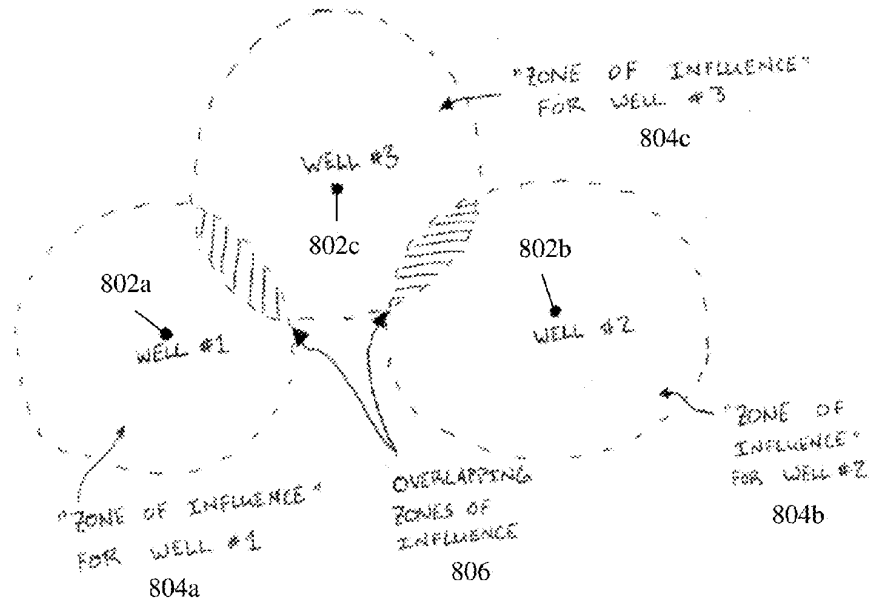 "ZONE OF INFLUENCE"
FOR WELL #3
804c
WELL #3
802c
802b
WELL #2
802a
WELL #1
"ZONE OF
INFLUENCE"
FOR WELL #2
804b
"ZONE OF INFLUENCE"
FOR WELL #1
804a
OVERLAPPING
ZONES OF
INFLUENCE
806